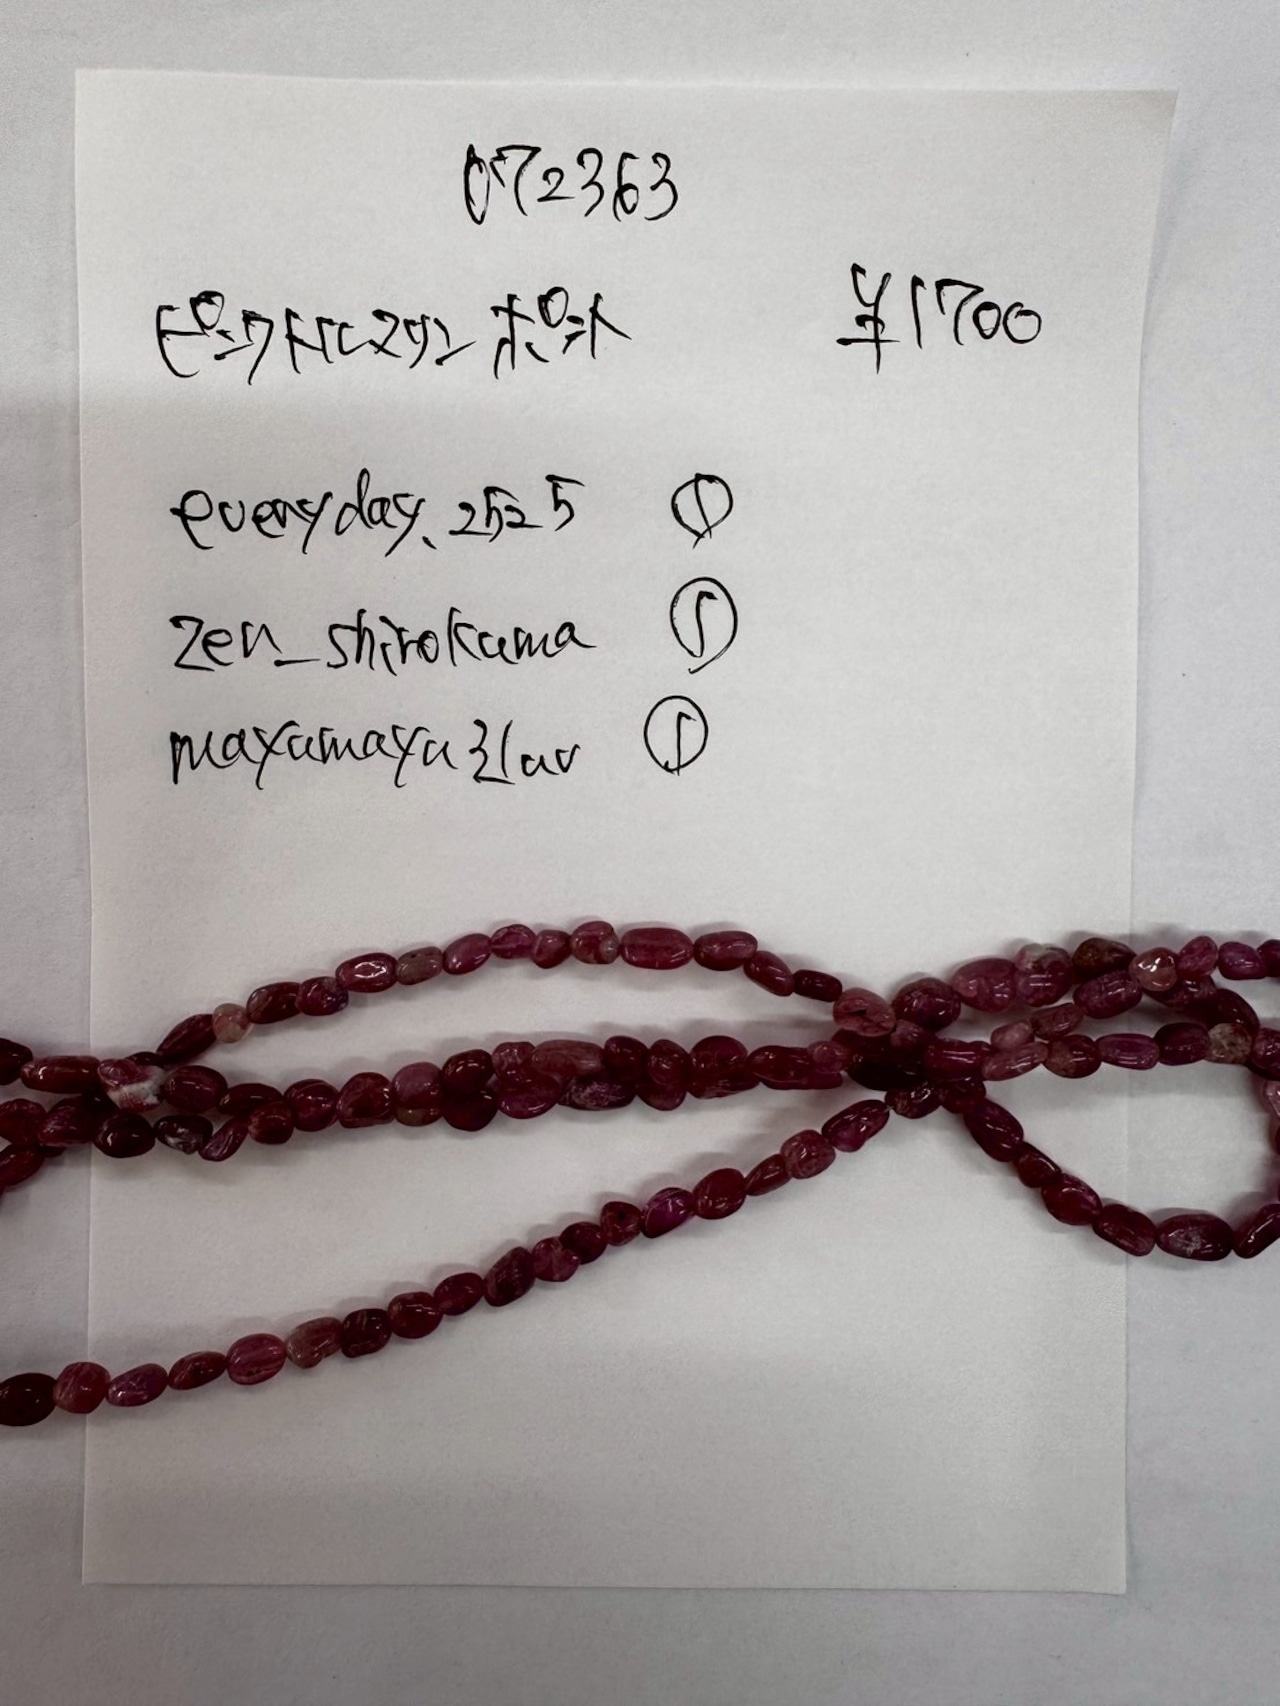 072363
ピンクトルマリン ポット ¥1700
everyday.2525 ①
zen_shirokuma ①
mayumayu31au ①